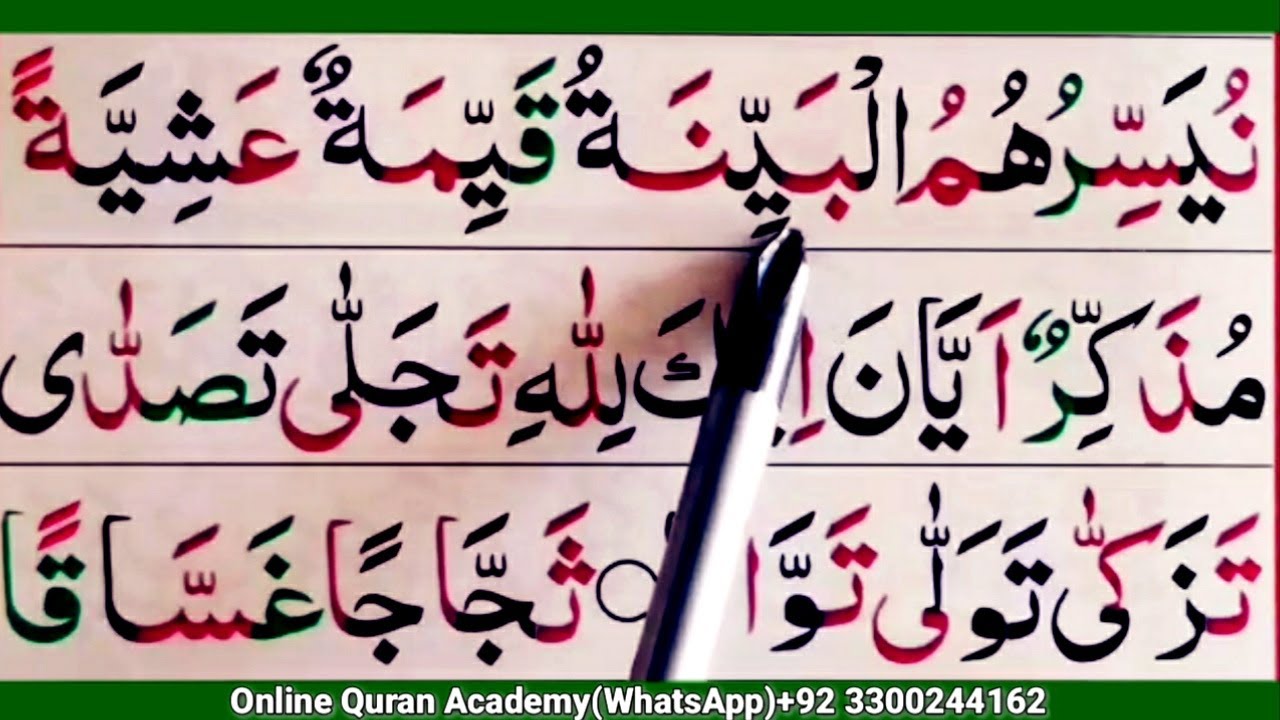 نُيَسِّرُ هُمُ الْبَيِّنَةُ قَيِّمَةٌ عَشِيَّةً
مُذَكِّرٌ اَيَّانَ لِلّٰهِ تَجَلّٰى تَصَدّٰى
تَزَكّٰى تَوَلّٰى ثَجَّاجًا غَسَّاقًا
Online Quran Academy(WhatsApp)+92 3300244162